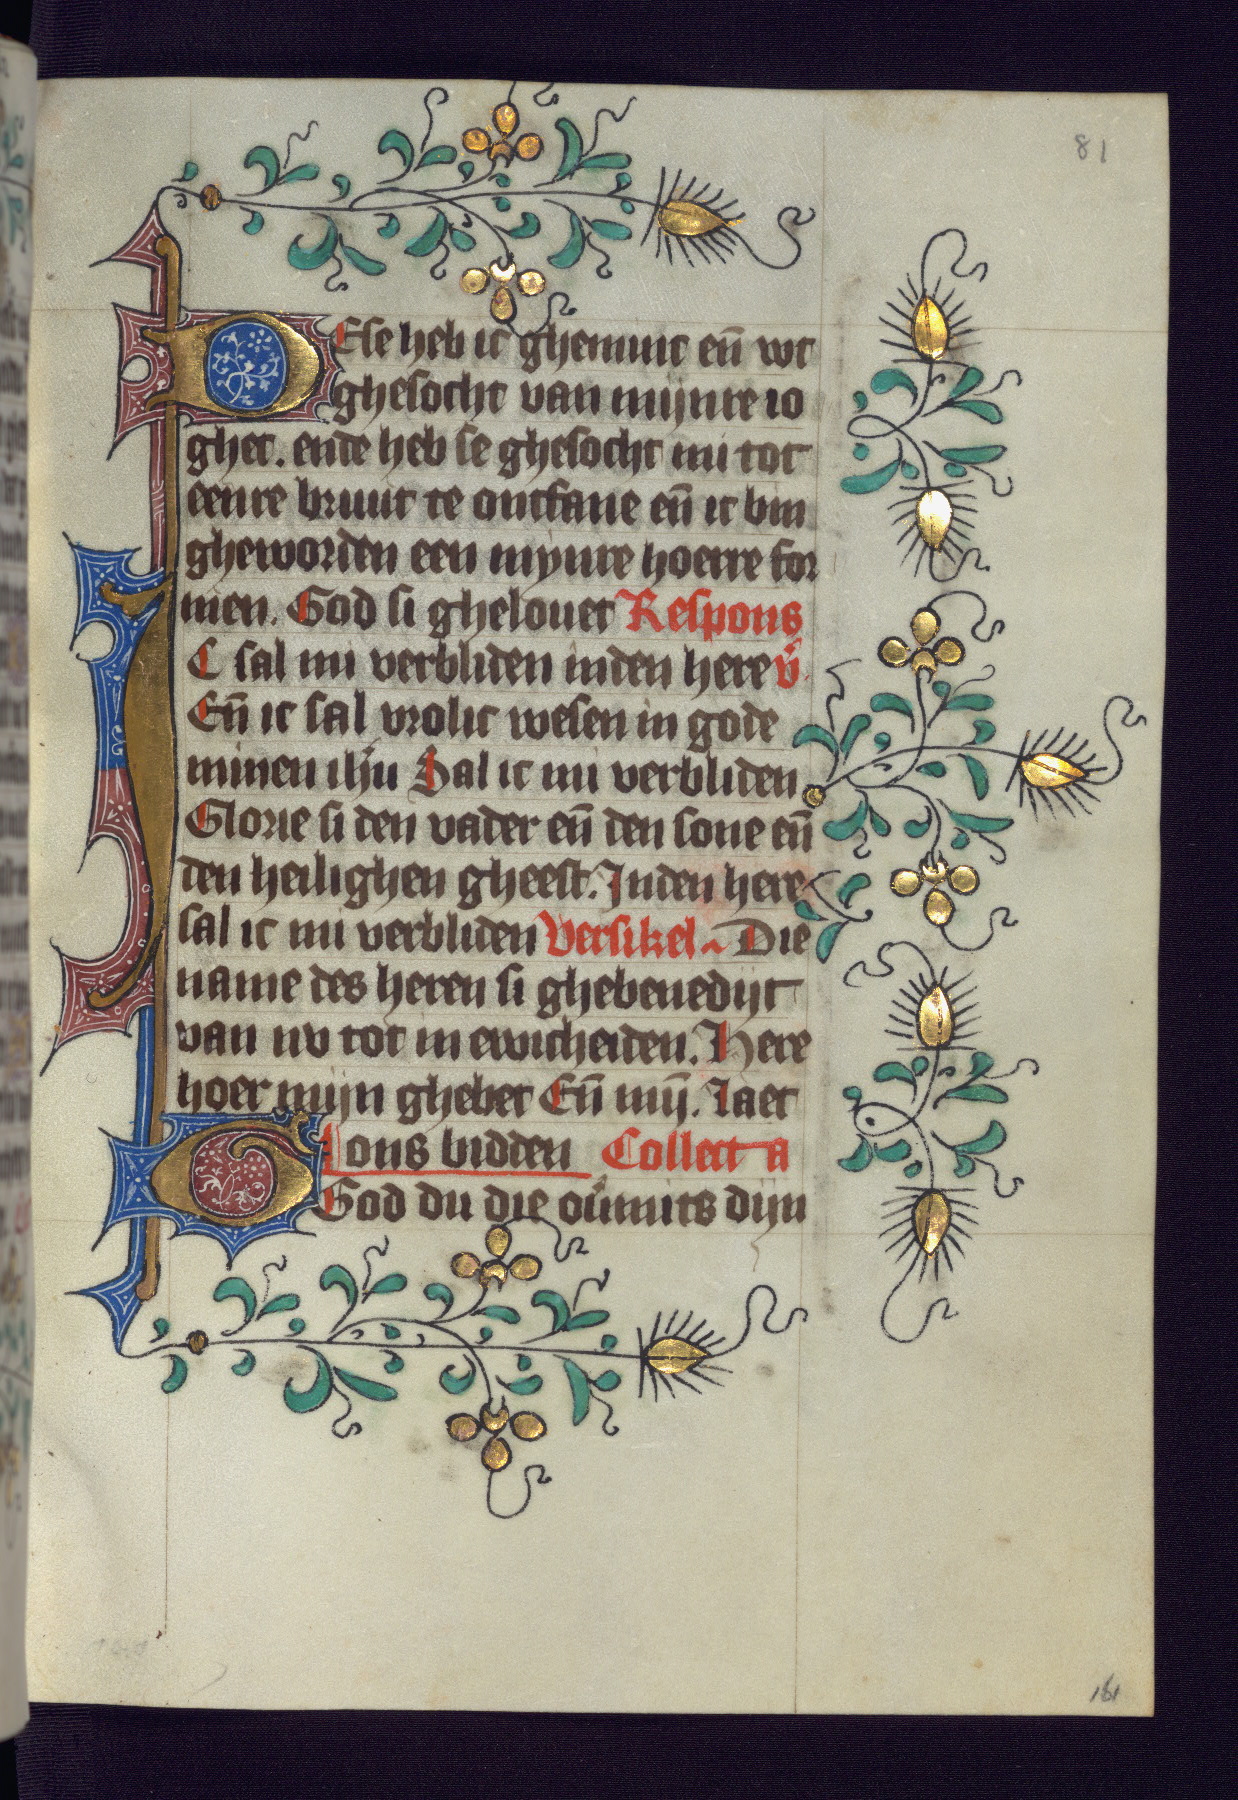 81
DEse heb ic ghemint en̄ wt
ghesocht van mijnre io
ghet. ende heb se ghesocht mi tot
eenre bruut te ontfane en̄ ic bin
gheworden een mynre hoerre for
men. God si ghelouet Respons
IC sal mi verbliden inden here v̄.
En̄ ic sal vrolic wesen in gode
minen ihū Sal ic mi verbliden
Glorie si den vader en̄ den sone en̄
den heilighen gheest. Inden here
sal ic mi verbliden Versikel Die
name des heren si ghebenedijt
van nv tot in ewicheiden. Here
hoer mijn ghebet En̄ mij̄. Laet
ons bidden Collecta
God du die oumits dijn
161